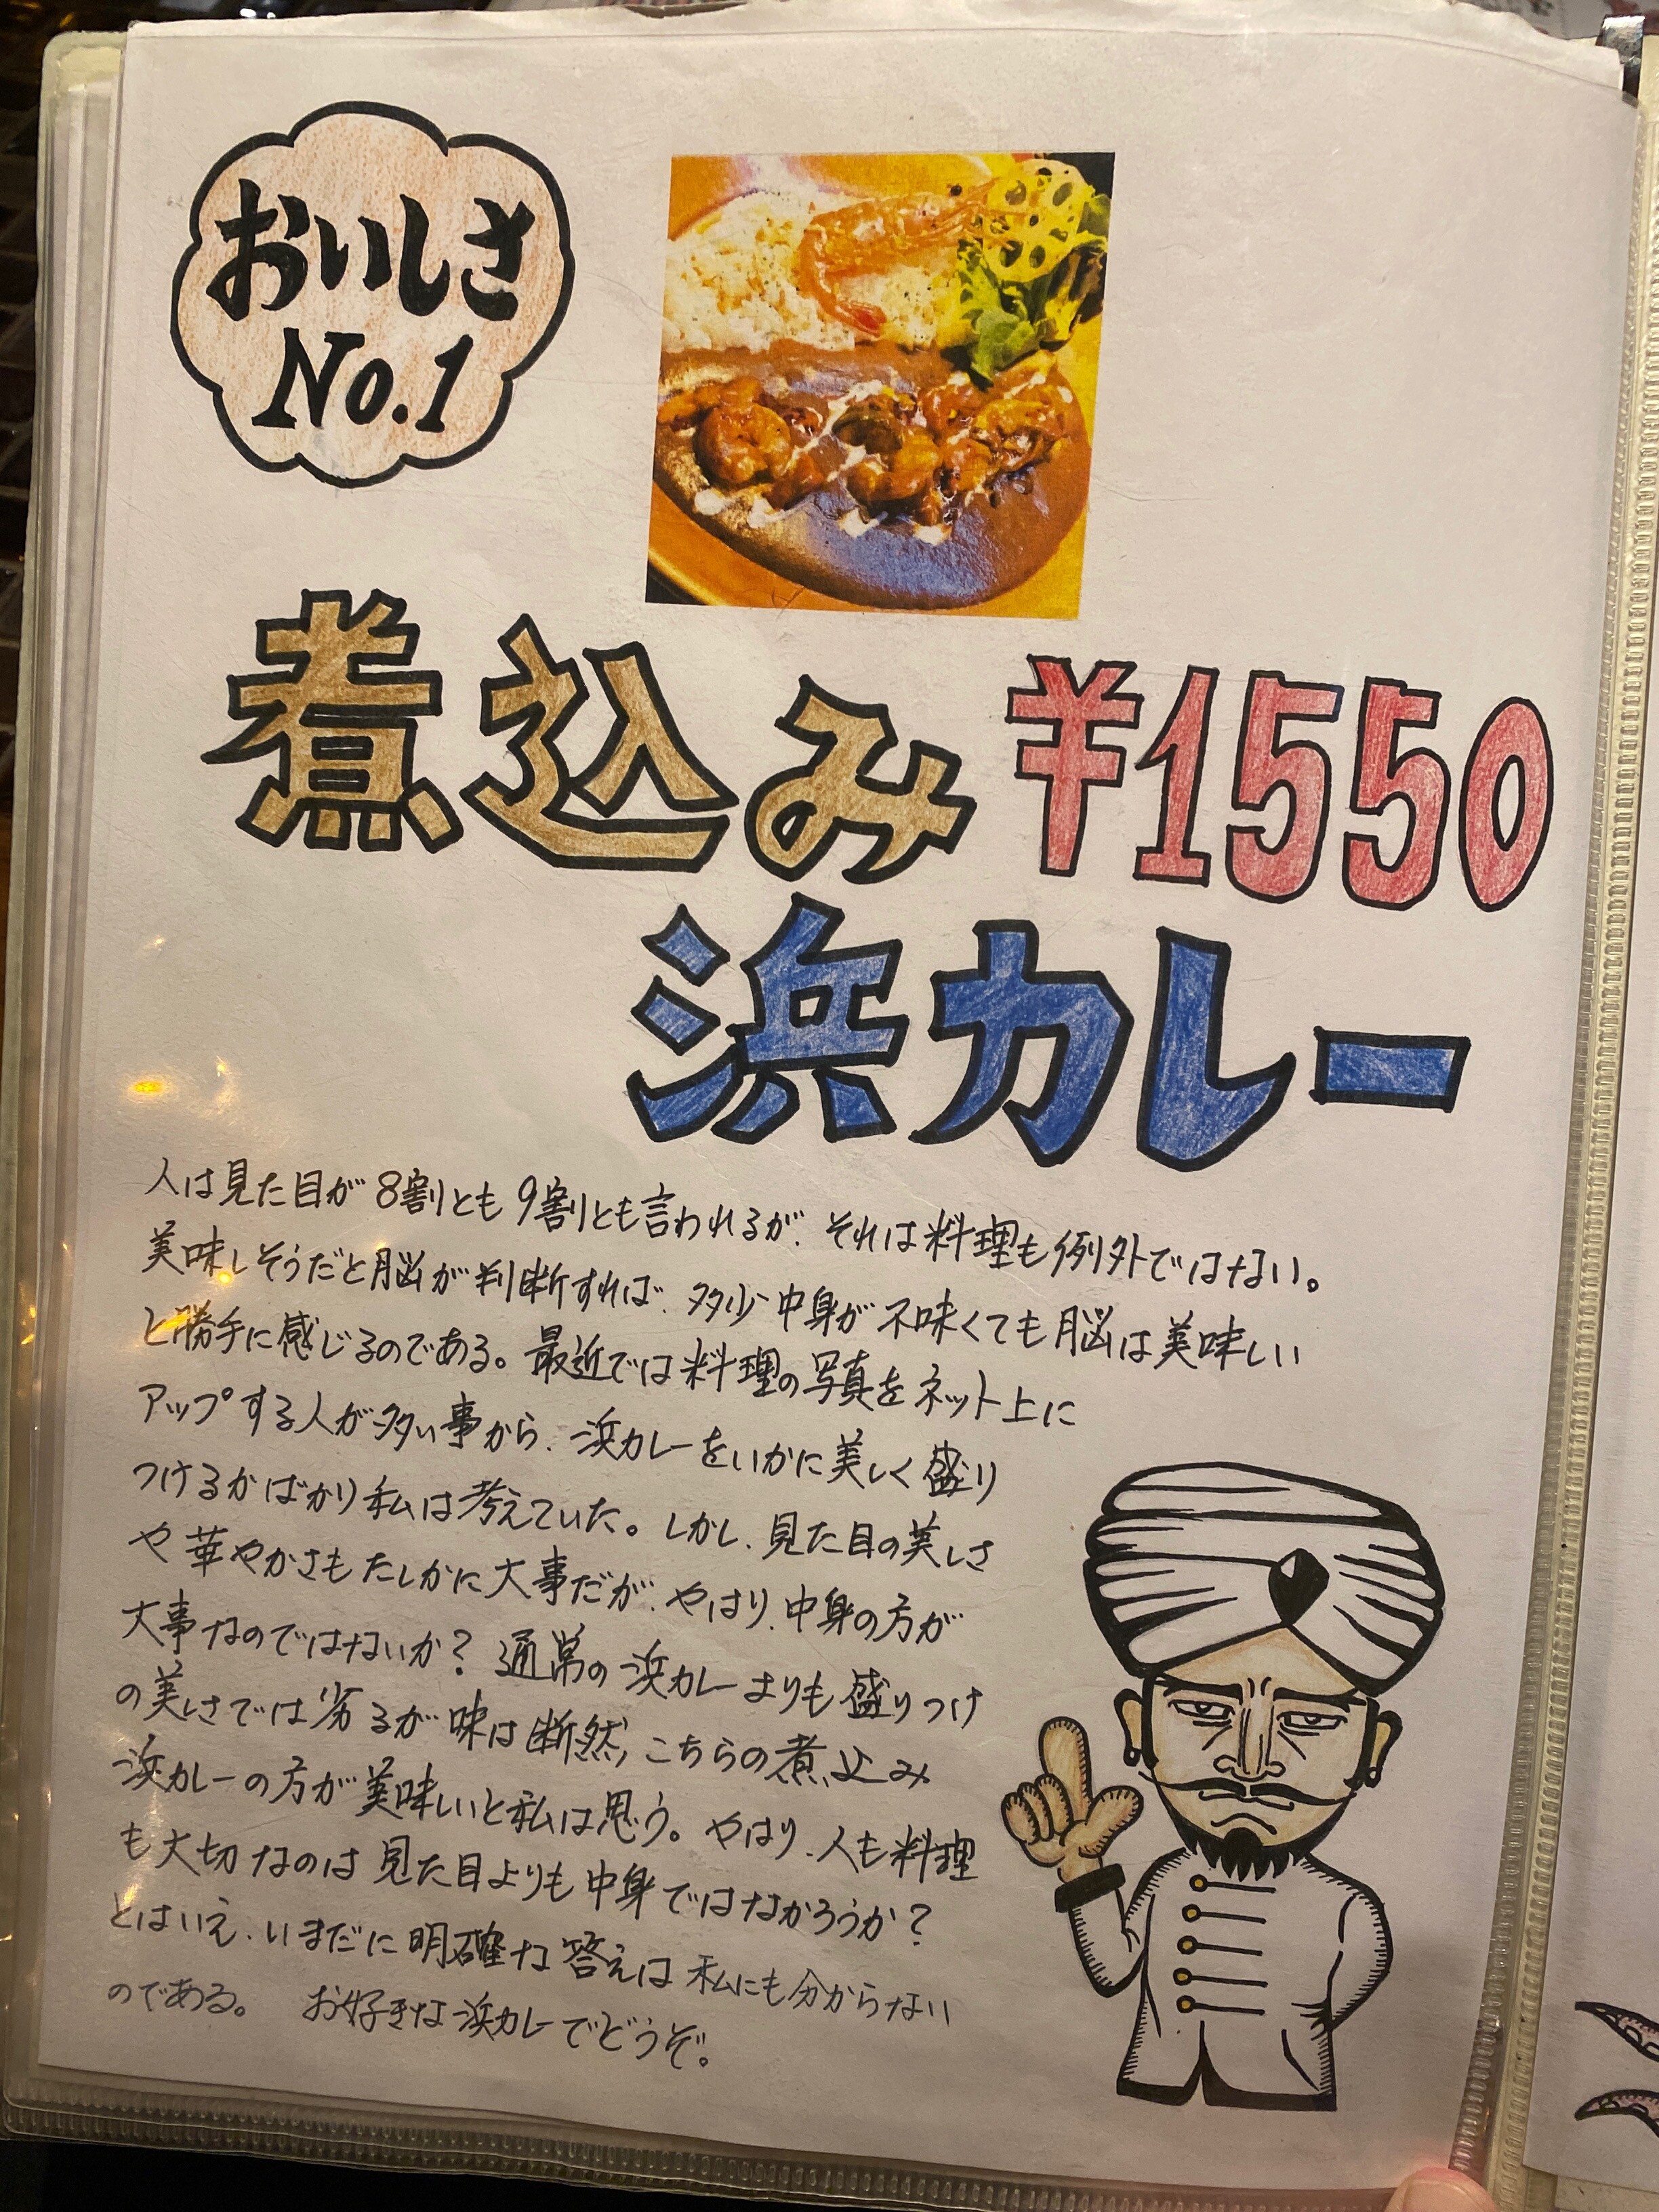 おいしさ
No.1
煮込み ¥1550
浜カレー
人は見た目が8割とも9割とも言われるが、それは料理も例外ではない。
美味しそうだと脳が判断すれば、多少中身が不味くても脳は美味しい
と勝手に感じるのである。最近では料理の写真をネット上に
アップする人が多い事から、浜カレーをいかに美しく盛り
つけるかばかり私は考えていた。しかし、見た目の美しさ
や華やかさもたしかに大事だが、やはり、中身の方が
大事なのではないか?通常の浜カレーよりも盛りつけ
の美しさでは劣るが味は断然、こちらの煮込み
浜カレーの方が美味しいと私は思う。やはり、人も料理
も大切なのは見た目よりも中身ではなかろうか?
とはいえ、いまだに明確な答えは私にも分からない
のである。 お好きな浜カレーでどうぞ。